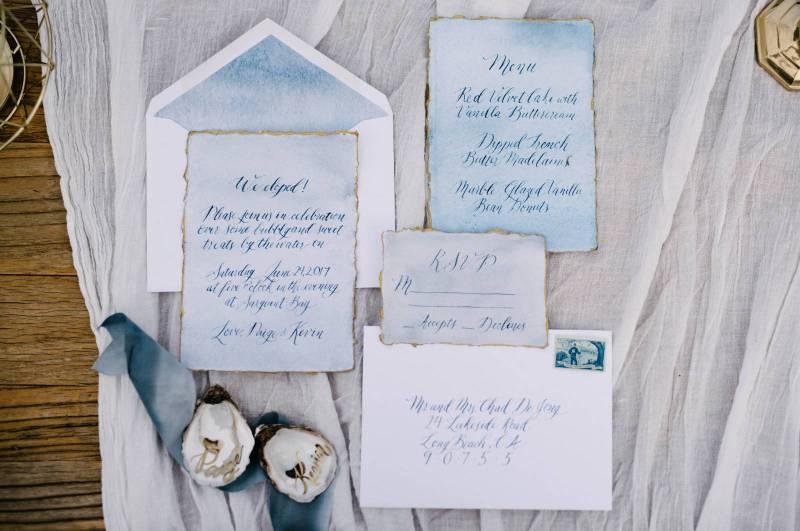 We eloped!
Please join us in celebration
over some bubbly and sweet
treats by the water on
Saturday, June 24, 2017
at five o'clock in the evening
at Sargeant Bay
Love, Paige & Kevin
Menu
Red Velvet Cake with
Vanilla Buttercream
Dipped French
Butter Madelaines
Marble Glazed Vanilla
Bean Donuts
RSVP
M
Accepts Declines
Mr and Mrs Chad De Jong
24 Lakeside Road
Long Beach, CA
90755
Paige
Kevin